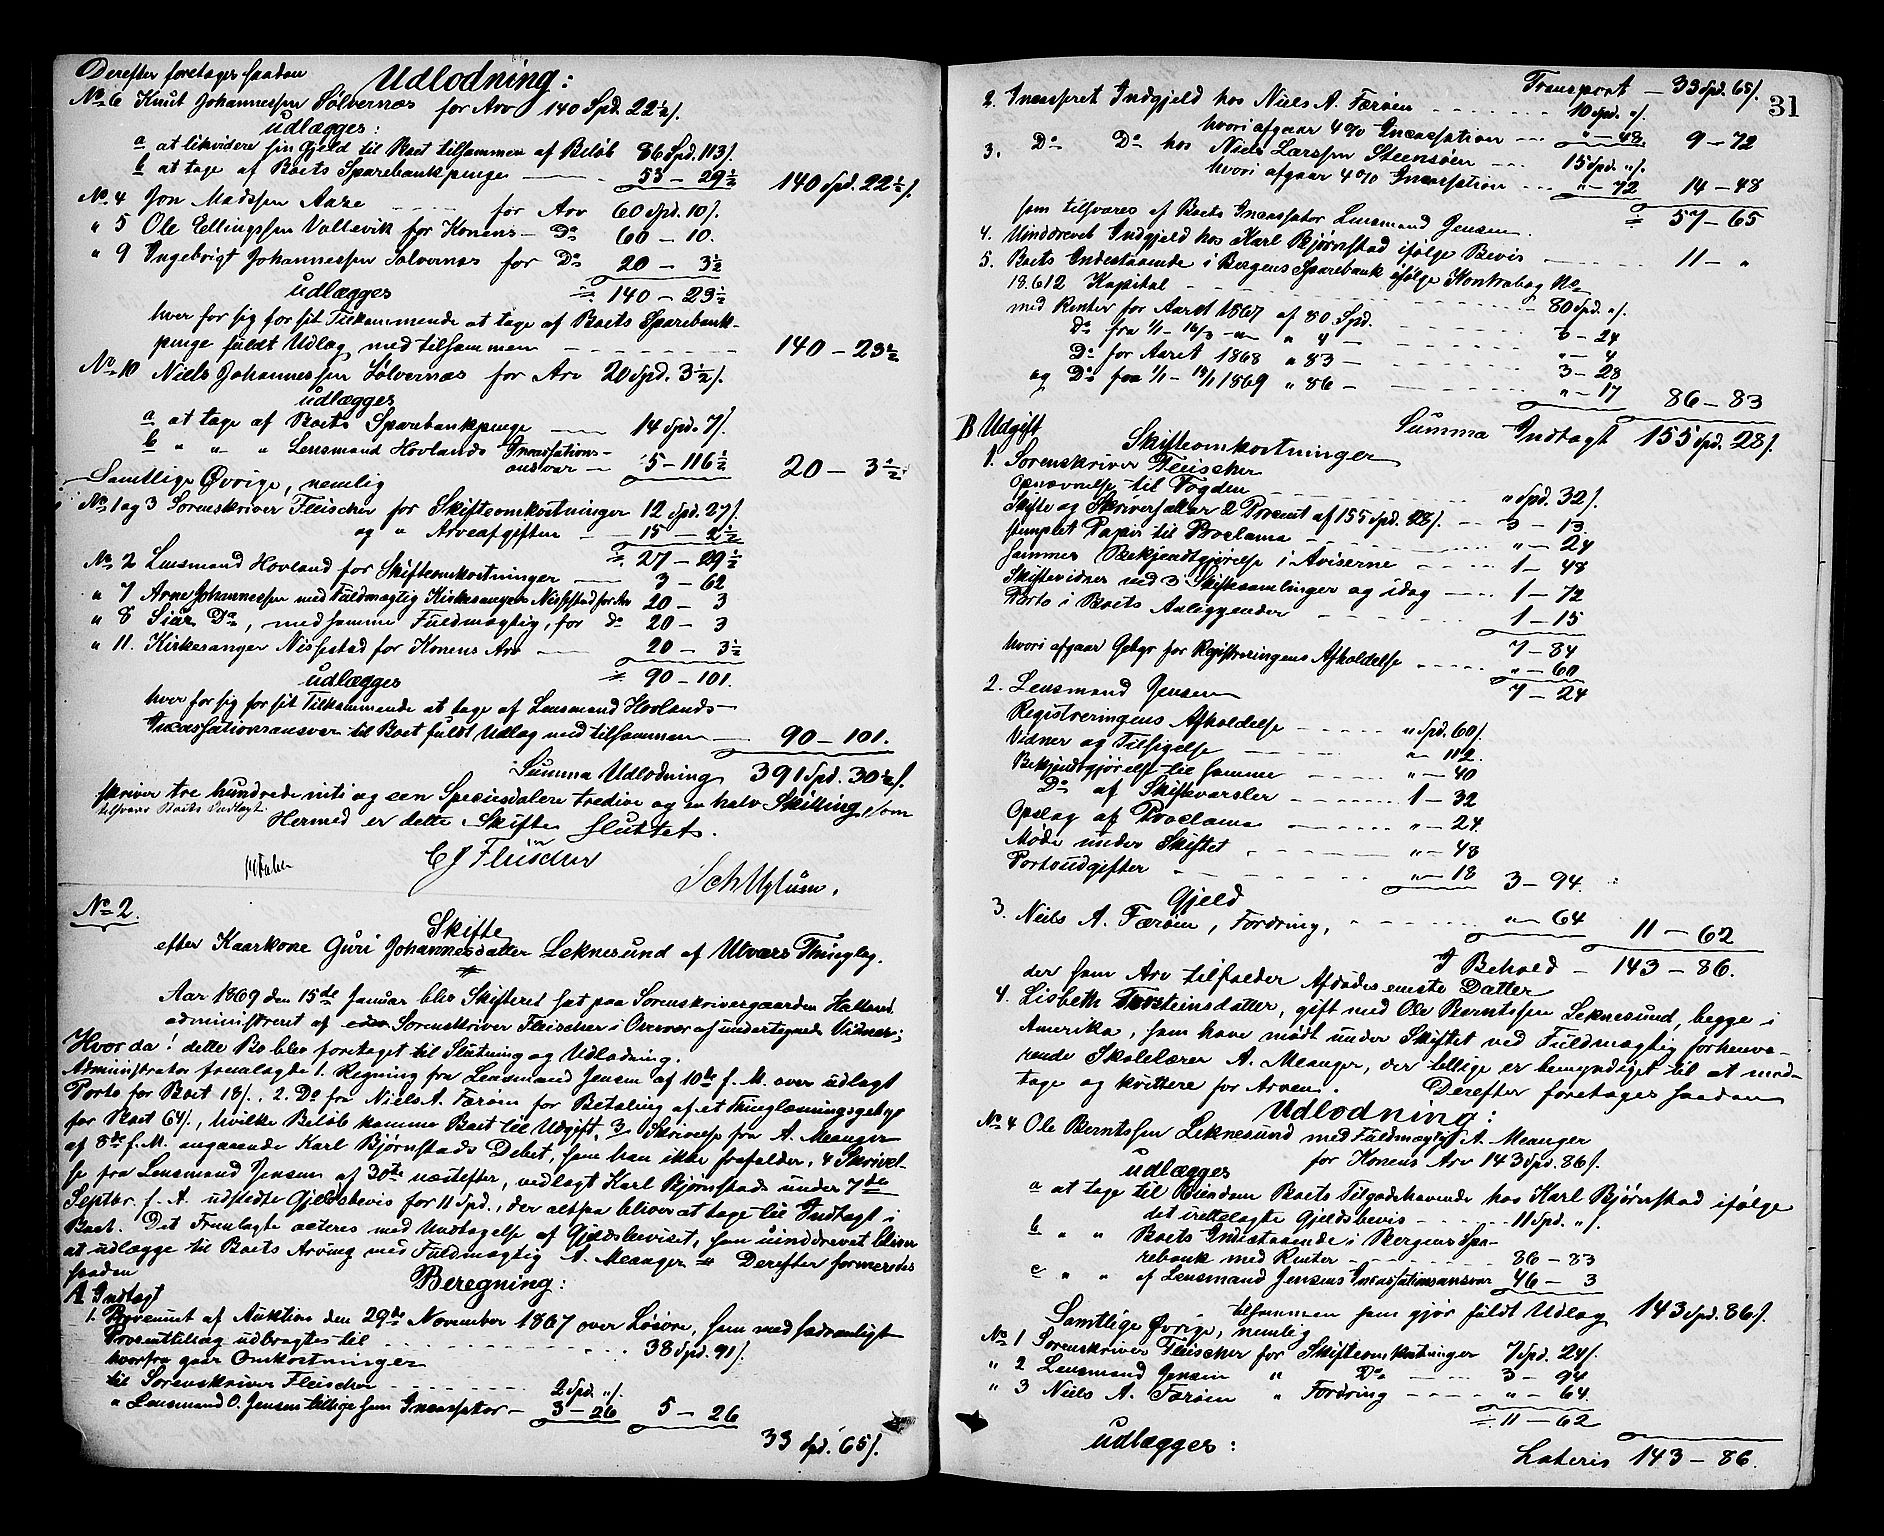 Derefter foretages saadan
Udlodning:
No 6 Knut Johannessen Sølvernæs for Arv 140 Spd. 22½ /.
udlægges:
a at likvidere sin Gjeld til Boet tilsammen af Beløb 86 Spd. 113 /.
b at tage af Boets Sparebankpenge 53 – 29½ 140 Spd. 22½ /.
No. 4 Jon Madssen Aare for Arv 60 Spd. 10 /.
" 5 Ole Ellingssen Vallevik for Konens Do 60 – 10.
" 9 Ingebrigt Johannessen Sølvernæs for Do 20 – 3½
udlægges 140 – 23½
hver for sig for sit Tilkommende at tage af Boets Sparebank-
penge fuldt Udlæg med tilsammen 140 – 23½
No. 10 Niels Johannessen Sølvernæs for Arv 20 Spd. 3½ /.
udlægges
a at tage af Boets Sparebankpenge 14 Spd. 7 /.
b " " " Lensmand Hovlands Incassations-
ansvar 5 – 116½ 20 – 3½
Samtlige Øvrige, nemlig
No. 1 og 3 Sorenskriver Fleischer for Skifteomkostninger 12 Spd. 27 /.
og " Arveafgiften 15 – 2½
27 – 29½
No. 2 Lensmand Hovland for Skifteomkostninger 3 – 62
" 7 Arne Johannessen med Fuldmægtig Kirkesanger Nissestad for Arv 20 – 3
" 8 Siur Do, med samme Fuldmægtig, for do 20 – 3
" 11. Kirkesanger Nissestad for Konens Arv 20 – 3½
udlægges 90 – 101.
hver for sig for sit Tilkommende at tage af Lensmand Hovlands
Incassationsansvar til Boet fuldt Udlæg med tilsammen 90 – 101.
Summa Udlodning 391 Spd. 30½ /.
skriver tre hundrede niti og een Speciesdalere tredive og en halv Skilling, som
tilsvarer Boets Indtægt.
Hermed er dette Skifte sluttet.
CJ Fleischer
No 2.
Skifte
efter Kaarkone Guri Johannesdatter Leknesund af Utvær Thinglag.
Aar 1869 den 15de Januar blev Skifteret sat paa Sorenskrivergaarden
administreret af Sorenskriver Fleischer i Overvær af undertegnede Vidner;
Hvor da! dette Bo blev foretaget til Slutning og Udlodning.
Administrator fremlagte 1. Regning fra Lensmand Jensen af 10de f. M. over udlagt
Porto for Boet 18 /., 2. Do fra Niels A. Færøen for Betaling af et Thinglæsningsgebyr
for Boet 64 /., hvilke Beløb komme Boet til Udgift, 3. Skrivelse fra A. Meanger
af 8de f. M. angaaende Karl Bjørnstads Debet, som han ikke frafalder, 4 Skrivel-
se fra Lensmand Jensen af 30te næstefter, vedlagt Karl Bjørnstads under 7de
Septbr. f. A. udstedte Gjeldsbevis for 11 Spd., der altsaa bliver at tage til Indtægt i
Boet. Det Fremlagte acteres med Undtagelse af Gjeldsbeviset, som uinddrevet bliver
at udlægge til Boets Arving med Fuldmægtig A. Meanger. Derefter formeredes
saadan
Beregning:
A Indtægt
1. Provenuet af Auktion den 29de November 1867 over Løsøre, som med sædvanligt
Procenttillæg udbragtes til 38 Spd. 91 /.
hvorfra gaar Omkostninger
til Sorenskriver Fleischer 2 Spd. " /.
" Lensmand O. Jensen tillige som Incassator 3 – 26 5 – 26
33 Spd. 65 /.
31
Transport 33 Spd. 65 /.
2. Incasseret Indgjeld hos Niels A. Færøen 10 Spd. " /.
hvori afgaar 4% Incassation " – 48 9 – 72
3. Do Do hos Niels Larssen Steensøen 15 Spd. " /.
hvori afgaar 4% Incassation " – 72 14 – 48
som tilsvares af Boets Incassator Lensmand Jensen. 57 – 65
4. Uinddrevet Indgjeld hos Karl Bjørnstad ifølge Bevis 11 – "
5. Boets Indestaaende i Bergens Sparebank ifølge Kontrabog No
18.612 Kapital 80 Spd. " /.
med Renter for Aaret 1867 af 80 Spd. 3 – 24
Do for Aaret 1868 " 83 3 – 28
og Do fra 1/1 – 1869 " 86 " – 17
86 – 83
Summa Indtægt 155 Spd. 28 /.
B Udgift
Skifteomkostninger
1. Sorenskriver Fleischer
Opnævnelse til Fogden " Spd. 32 /.
Skifte og Skriversallær 2 Procent af 155 Spd. 28 /. 3 – 13
stemplet Papir til Proclama " – 24
sammes Bekjendtgjørelse i Aviserne 1 – 48
Skiftevidner ved 3 Skiftesamlinger og idag 1 – 72
Porto i Boets Anliggender 1 – 15
7 – 84
hvori afgaar Gebyr for Registreringens Afholdelse " – 60
7 – 24
2. Lensmand Jensen
Registreringens Afholdelse " Spd. 60 /.
Vidner og Tilsigelse " – 112
Bekjendtgjørelse til samme " – 40
Do af Skiftevarsler 1 – 32
Opslag af Proclama " – 24
Møde under Skiftet " – 48
Portoudgifter " – 18 3 – 94
Gjeld
3. Niels A. Færøen, Fordring, " – 64 11 – 62
I Behold 143 – 86.
der som Arv tilfalder Afdødes eneste Datter
4. Lisbeth Torsteinsdatter, gift med Ole Berntssen Leknesund, begge i
Amerika, som have mødt under Skiftet ved Fuldmægtig forhenvæ-
rende Skolelærer A. Meanger, der tillige er bemyndiget til at mod-
tage og kvittere for Arven. Derefter foretages saadan
Udlodning:
No 4 Ole Berntssen Leknesund med Fuldmægtig A. Meanger
for Konens Arv 143 Spd. 86 /.
udlægges
a at tage til Eiendom Boets Tilgodehavende hos Karl Bjørnstad ifølge
det irettelagte Gjeldsbevis 11 Spd. " /.
b " " Boets Indestaaende i Bergens Spa-
rebank med Renter 86 – 83
c " " af Lensmand Jensens Incassationsansvar 46 – 3
tilsammen som gjør fuldt Udlæg 143 Spd. 86 /.
Samtlige Øvrige, nemlig
No 1 Sorenskriver Fleischer for Skifteomkostninger 7 Spd. 24 /.
" 2 Lensmand Jensen " Do 3 – 94
" 3 Niels A. Færøen " Fordring " – 64
11 – 62
udlægges:
Lateris 143 – 86.